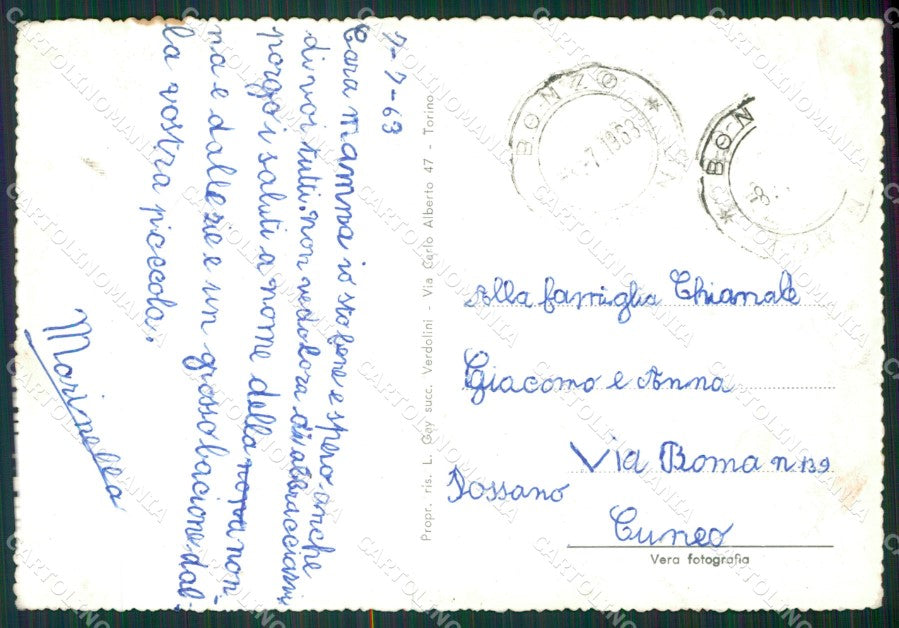 7-7-63
Cara mamma io sto bene e spero anche
di voi tutti. non vedo lora di abbracciarvi
porgo i saluti a nome della nonna non-
na e dalle zie e un grosso bacione dal-
la vostra piccola.
Marinella
Propr. ris. L. Gay succ. Verdolini - Via Carlo Alberto 47 - Torino
BONZO
7.1963
BON
8.
Alla famiglia Chianale
Giacomo e Anna
Via Roma n 139
Fossano
Cuneo
Vera fotografia
CARTOLINOMANIA